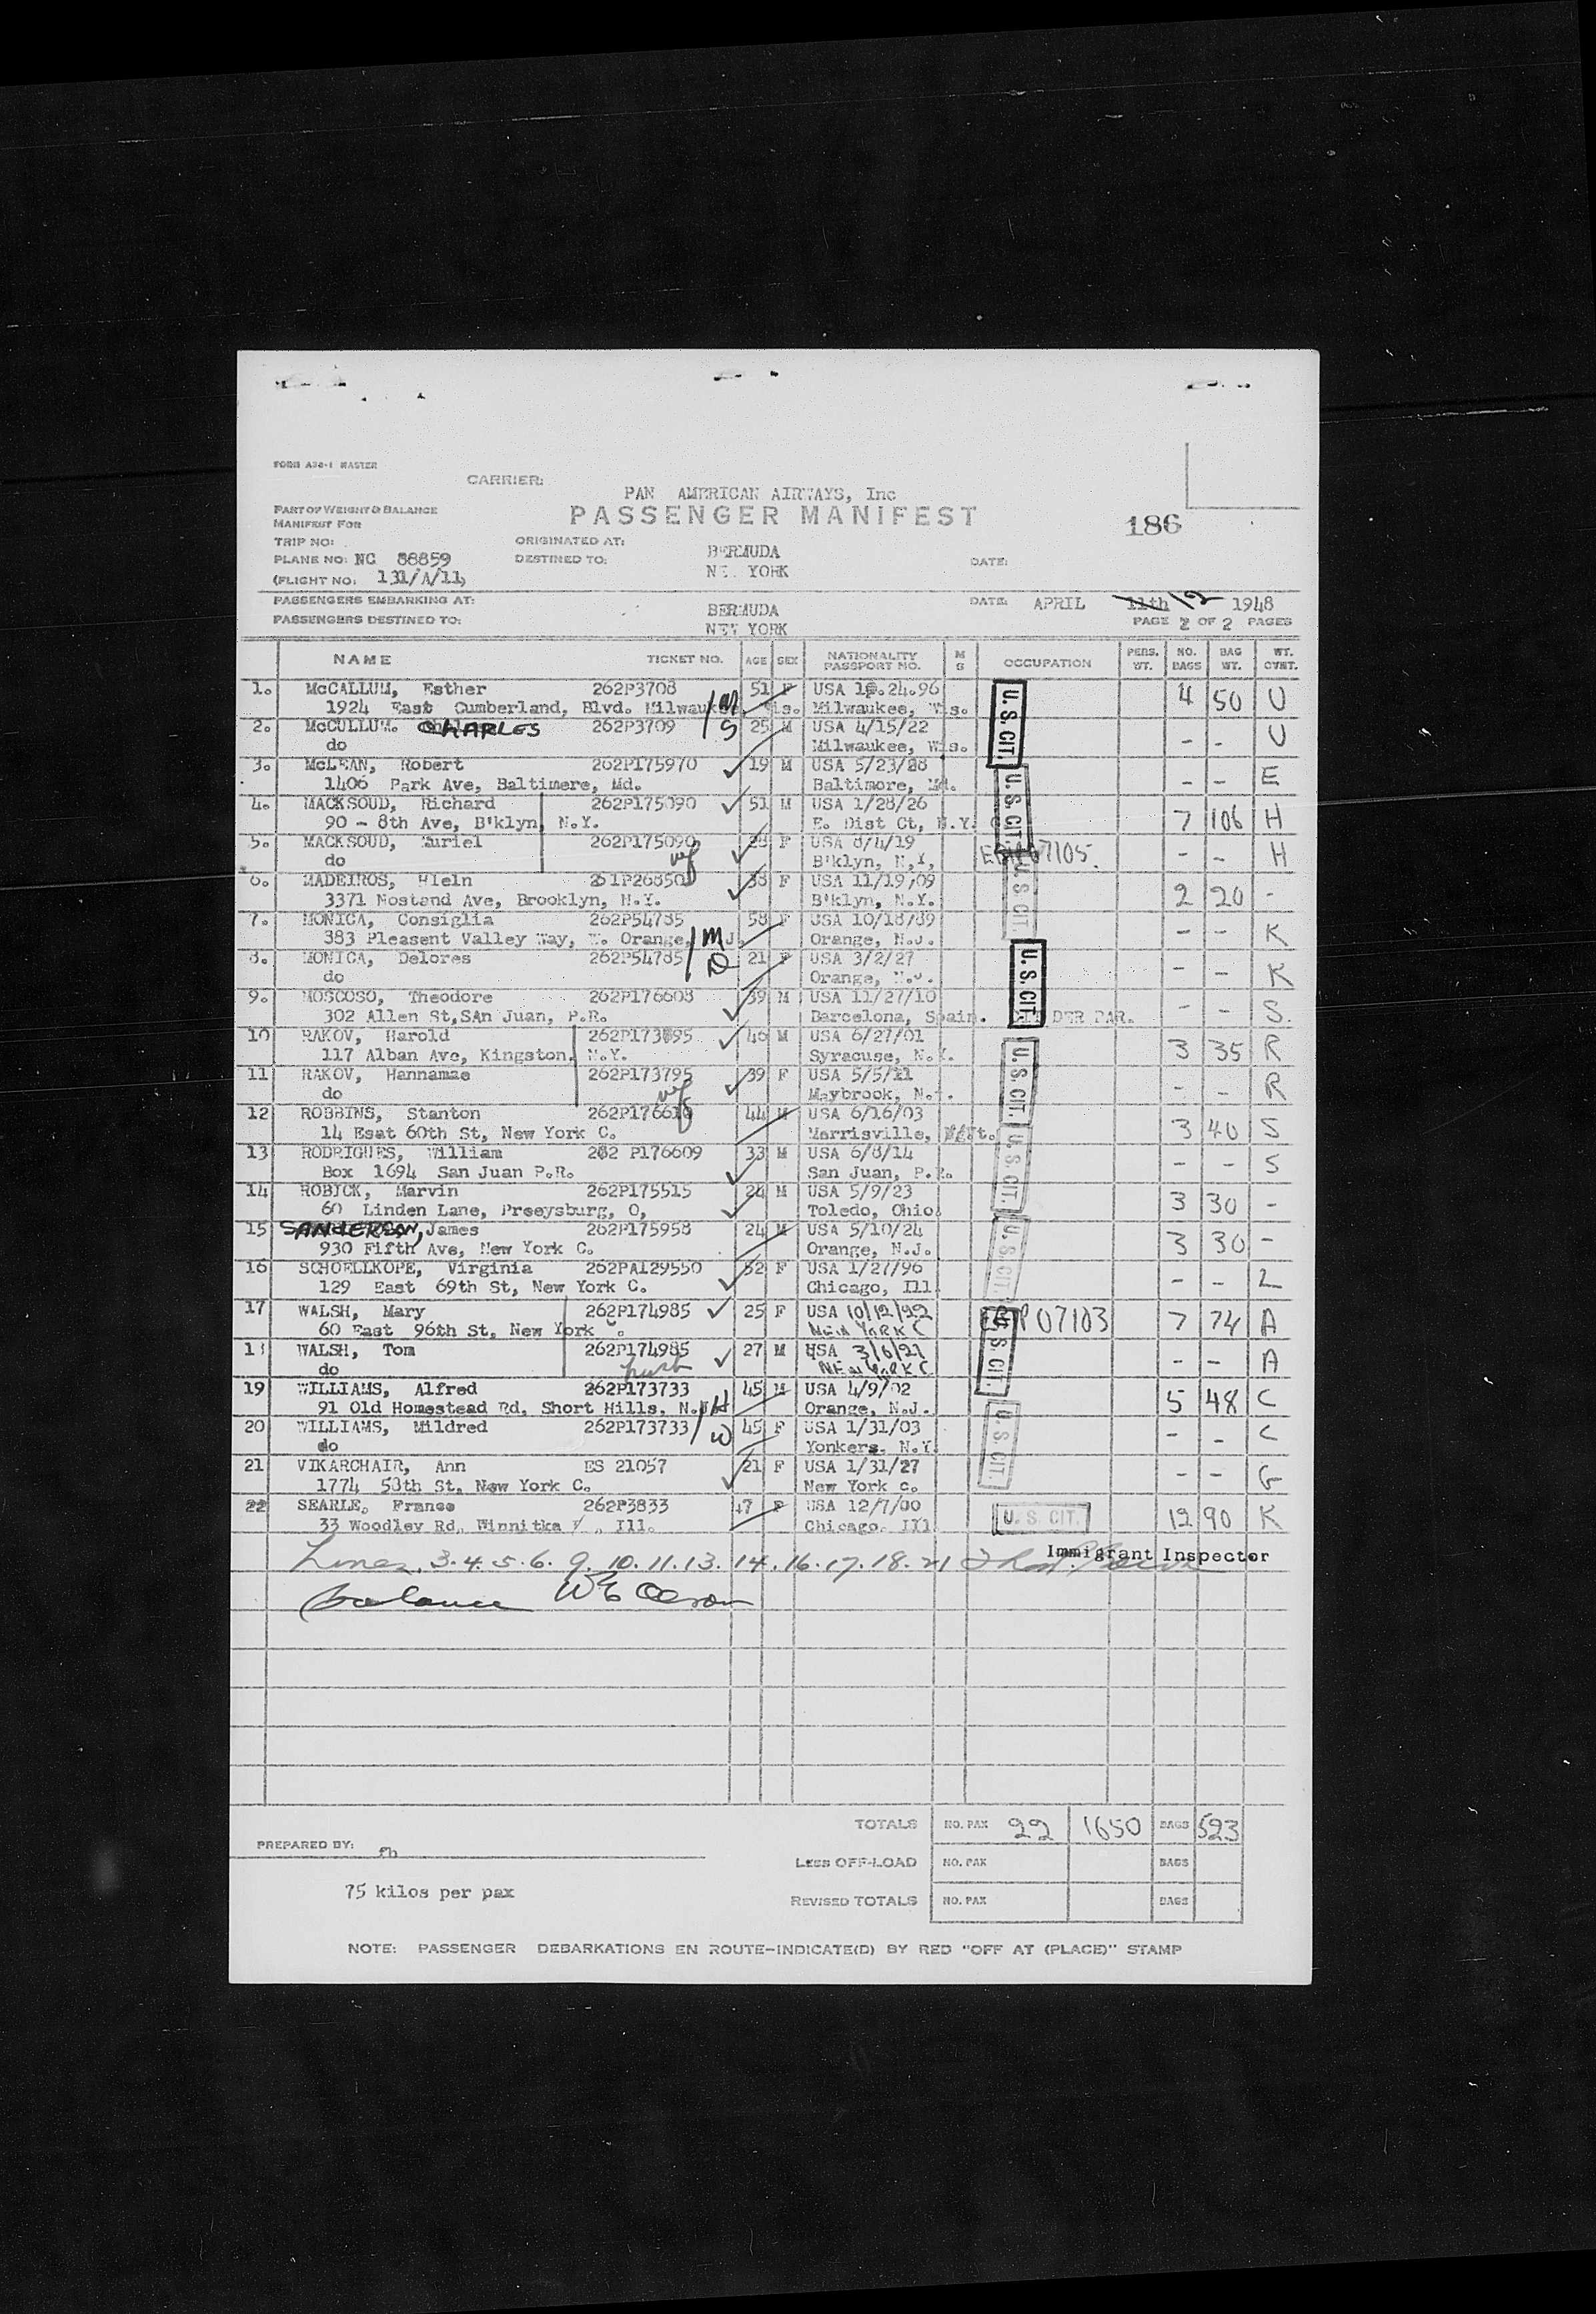 FORM A38-1 MASTER
CARRIER:
PAN AMERICAN AIRWAYS, Inc
PART OF WEIGHT & BALANCE
PASSENGER MANIFEST
186
MANIFEST FOR
TRIP NO:
ORIGINATED AT: BERMUDA
PLANE NO: NC 88859
DESTINED TO: NE. YORK
DATE:
(FLIGHT NO: 131/A/11)
PASSENGERS EMBARKING AT: BERMUDA
DATE: APRIL 11th 12 1948
PASSENGERS DESTINED TO: NEW YORK
PAGE 2 OF 2 PAGES
NAME TICKET NO. AGE SEX NATIONALITY PASSPORT NO. M S OCCUPATION PERS. WT. NO. BAGS BAG WT. WT. CVRT.
1. McCALLUM, Esther 262P3708 51 F USA 10.24.96 U.S. CIT. 4 50 U
1924 East Cumberland, Blvd. Milwaukee, Wis. Milwaukee, Wis.
2. McCULLUM. CHARLES 262P3709 S 25 M USA 4/15/22 - - U
do Milwaukee, Wis.
3. McLEAN, Robert 262P175970 19 M USA 5/23/28 U.S. CIT. - - E
1406 Park Ave, Baltimere, Md. Baltimore, Md.
4. MACKSOUD, Richard 262P175090 51 M USA 1/28/26 7 106 H
90 - 8th Ave, B'klyn, N.Y. E. Dist Ct, N.Y.
5. MACKSOUD, Muriel 262P175090 wf 28 F USA 8/4/19 07105. - - H
do B'klyn, N,Y, U.S. CIT.
6. MADEIROS, Hlein 261P26850 38 F USA 11/19/09 2 20 -
3371 Nostand Ave, Brooklyn, N.Y. B'klyn, N.Y.
7. MONICA, Consiglia 262P54785 58 F USA 10/18/89 - - K
383 Pleasent Valley Way, W. Orange, N.J. M Orange, N.J.
8. MONICA, Delores 262P54785 D 21 F USA 3/2/27 U.S. CIT. - - K
do Orange, N.J.
9. MOSCOSO, Theodore 262P176608 39 M USA 11/27/10 - - S.
302 Allen St,SAn Juan, P.R. Barcelona, Spain. DER PAR.
10 RAKOV, Harold 262P173795 46 M USA 6/27/01 U.S. CIT. 3 35 R
117 Alban Ave, Kingston, N.Y. Syracuse, N.Y.
11 RAKOV, Hannamae 262P173795 wf 39 F USA 5/5/11 - - R
do Maybrook, N.Y.
12 ROBBINS, Stanton 262P176610 44 M USA 6/16/03 3 40 S
14 Esat 60th St, New York C. Morrisville,
13 RODRIGUES, William 262 P176609 33 M USA 6/8/14 U.S. CIT. - - S
Box 1694 San Juan P.R. San Juan, P.R.
14 ROBICK, Marvin 262P175515 24 M USA 5/9/23 3 30 -
60 Linden Lane, Preeysburg, O, Toledo, Ohio.
15 SANDERSON, James 262P175958 24 M USA 5/10/24 U.S. CIT. 3 30 -
930 Fifth Ave, New York C. Orange, N.J.
16 SCHOELLKOPE, Virginia 262PA129550 52 F USA 1/27/96 - - L
129 East 69th St, New York C. Chicago, Ill
17 WALSH, Mary 262P174985 25 F USA 10/12/22 07103 7 74 A
60 East 96th St, New York C. NEW YORK C
18 WALSH, Tom 262P174985 27 M USA 3/6/21 U.S. CIT. - - A
do husb NEW YORK C
19 WILLIAMS, Alfred 262P173733 45 M USA 4/9/02 5 48 C
91 Old Homestead Rd, Short Hills, N.J. H Orange, N.J.
20 WILLIAMS, Mildred 262P173733 W 45 F USA 1/31/03 U.S. CIT. - - C
do Yonkers, N.Y.
21 VIKARCHAIR, Ann ES 21057 21 F USA 1/31/27 - - G
1774 58th St, New York C. New York c.
22 SEARLE, France 262P3833 47 F USA 12/7/00 U.S. CIT. 12 90 K
33 Woodley Rd, Winnitka, Ill. Chicago. Ill
Lines, 3. 4. 5. 6. 9. 10. 11. 13. 14. 16. 17. 18. 21 Immigrant Inspector
Balance
TOTALS NO. PAX 22 1650 BAGS 523
PREPARED BY: fh
LESS OFF-LOAD NO. PAX BAGS
75 kilos per pax
REVISED TOTALS NO. PAX BAGS
NOTE: PASSENGER DEBARKATIONS EN ROUTE-INDICATE(D) BY RED "OFF AT (PLACE)" STAMP